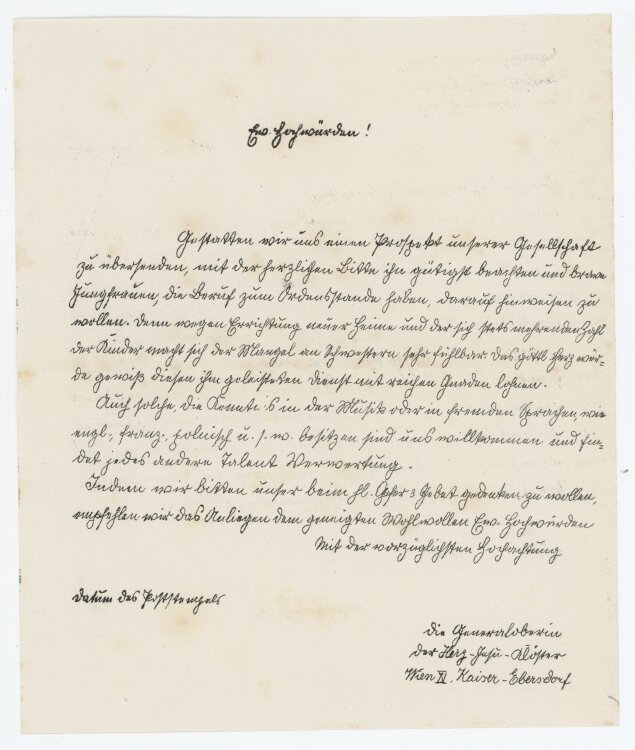 Ew. Hochwürden!
Gestatten wir uns einen Prospekt unserer Gesellschaft
zu übersenden, mit der herzlichen Bitte ihn gütigst beachten und brave
Jungfrauen, die Beruf zum Ordensstande haben, darauf hinweisen zu
wollen. Denn wegen Errichtung neuer Heime und der sich stets mehrenden Zahl
der Kinder macht sich der Mangel an Schwestern sehr fühlbar. Das göttl. Herz wer-
de gewiß diesen ihm geleisteten Dienst mit reichen Gnaden lohnen.
Auch solche, die Kenntnis in der Musik oder in fremden Sprachen, wie
engl., franz., polnisch u. s. w. besitzen sind uns willkommen und fin-
det jedes andere Talent Verwertung.
Indem wir bitten unser beim hl. Opfer & Gebet gedenken zu wollen,
empfehlen wir das Anliegen dem geneigten Wohlwollen Ew. Hochwürden
Mit der vorzüglichsten Hochachtung
Datum des Poststempels
Die Generaloberin
der Herz-Jesu-Klöster
Wien XI. Kaiser-Ebersdorf